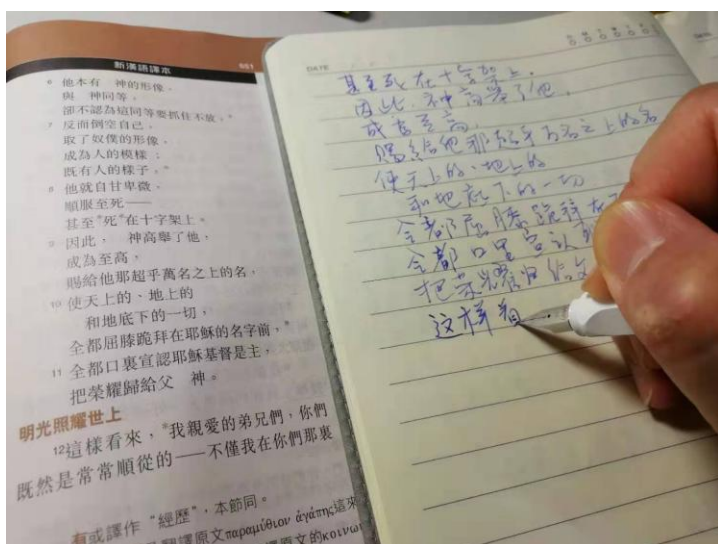 新漢語譯本
6 他本有 神的形像，
與 神同等，
卻不認為這同等要抓住不放，*
7 反而倒空自己，
取了奴僕的形像，
成為人的模樣；
既有人的樣子，*
8 他就自甘卑微，
順服至死——
甚至*死*在十字架上。
9 因此， 神高舉了他，
成為至高，
賜給他那超乎萬名之上的名，
10 使天上的、地上的
和地底下的一切，
全都屈膝跪拜在耶穌的名字前，*
11 全都口裏宣認耶穌基督是主，
把榮耀歸給父 神。
明光照耀世上
12這樣看來，*我親愛的弟兄們，你們
既然是常常順從的——不僅我在你們那裏
有或譯作“經歷”，本節同。
翻譯原文παραμύθιον ἀγάπης這來
原文的κοινων
DATE
甚至死在十字架上。
因此，神高举了他，
成为至高，
赐给他那超乎万名之上的名
使天上的、地上的
和地底下的一切
全都屈膝跪拜在
全都口里宣认
把荣耀归给父
这样看